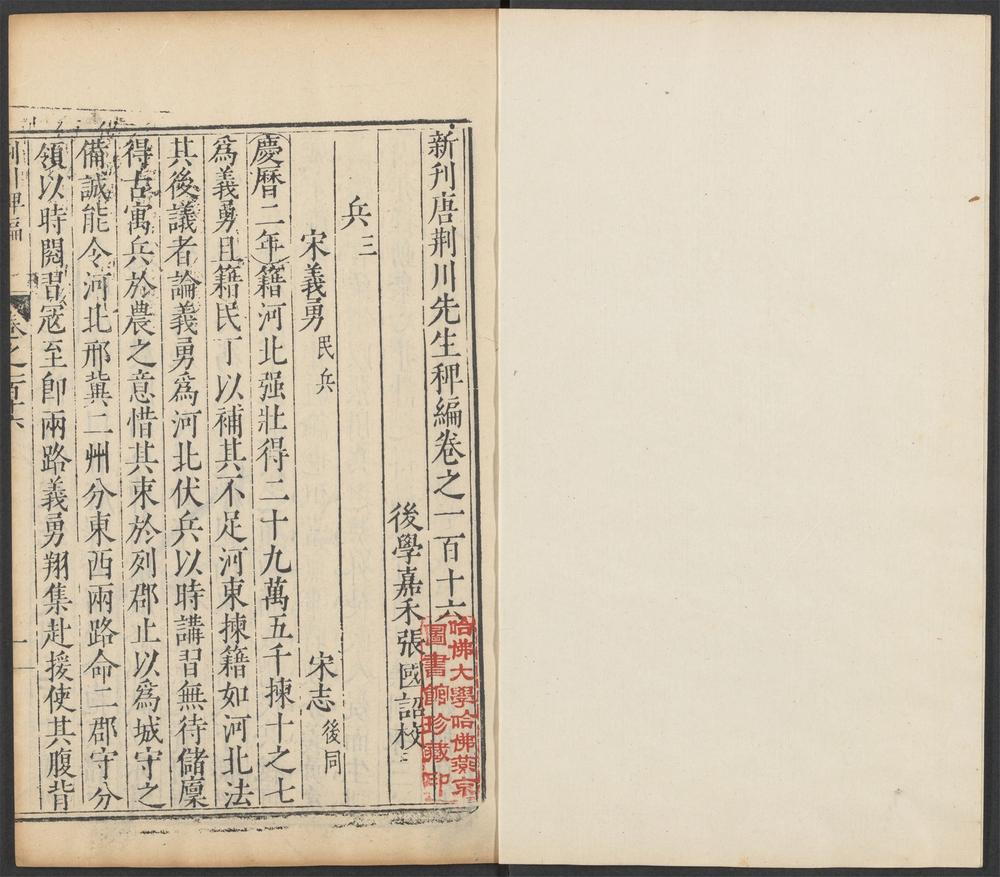 新刊唐荆川先生稗編卷之一百十六
後學嘉禾張國詔校
兵三
宋義勇 民兵 宋志 後同
慶曆二年籍河北强壯得二十九萬五千揀十之七
爲義勇且籍民丁以補其不足河東揀籍如河北法
其後議者論義勇爲河北伏兵以時講習無待儲廩
得古寓兵於農之意惜其束於列郡止以爲城守之
備誠能令河北邢冀二州分東西兩路命二郡守分
領以時閱習寇至卽兩路義勇翔集赴援使其腹背
荆川稗編 卷之一百十六 一
哈佛大學哈佛燕京
圖書館珍藏印